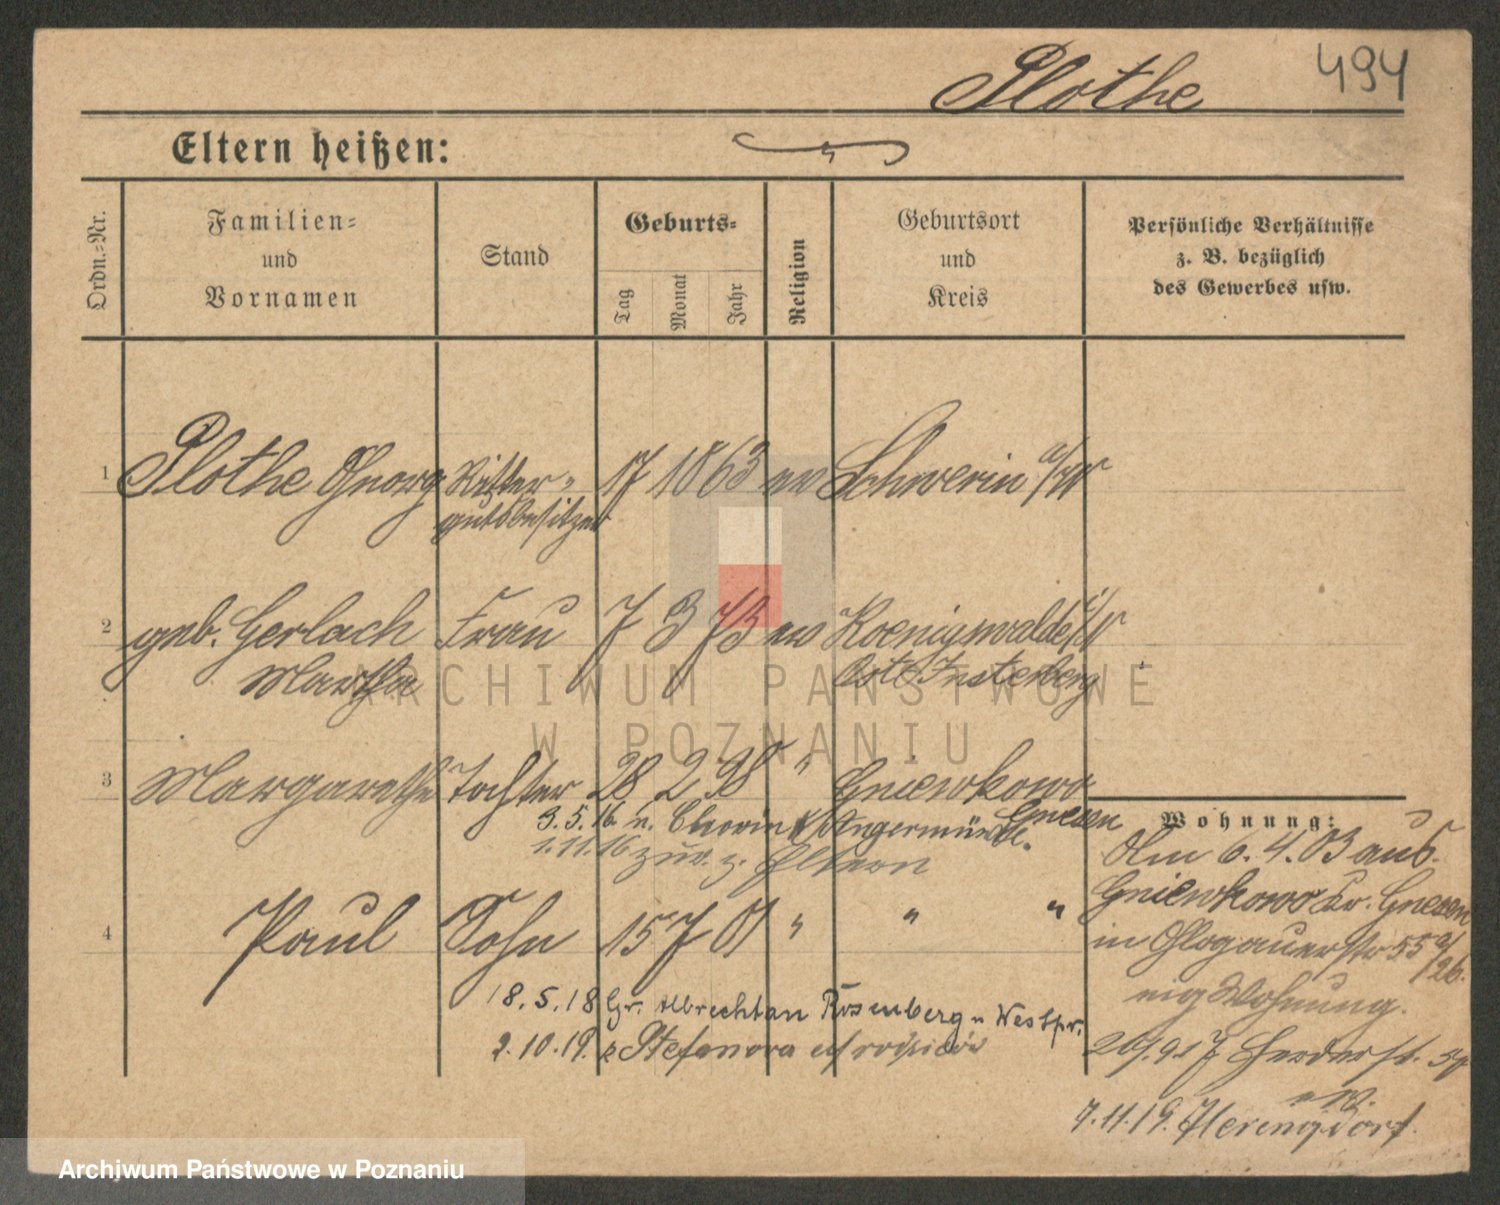 Plothe
494
Eltern heißen:
Ordn.-Nr.
Familien-
und
Vornamen
Stand
Geburts-
Tag
Monat
Jahr
Religion
Geburtsort
und
Kreis
Persönliche Verhältnisse
z. B. bezüglich
des Gewerbes usw.
1 Plothe Georg Ritter- 17 1863 ev Schwerin a/W
gutsbesitzer
2 geb. Gerlach Frau 7 3 73 ev Koenigswalde
Martha Ost Insterberg
3 Margarethe Tochter 28 2 98 " Gniewkowo
Gnesen
3.5.16 n. Chorin Angermünde.
1.11.16 zur. z. Eltern
4 Paul Sohn 15 7 01 " " "
18.5.18 Gr. Albrechtau Rosenberg Westpr.
2.10.19.
Wohnung:
Am 6.4.03 aus
Gniewkowo Kr. Gnesen
in Glogauerstr 55
Wohnung.
Herderst.
7.11.19.
ARCHIWUM PAŃSTWOWE
W POZNANIU
Archiwum Państwowe w Poznaniu